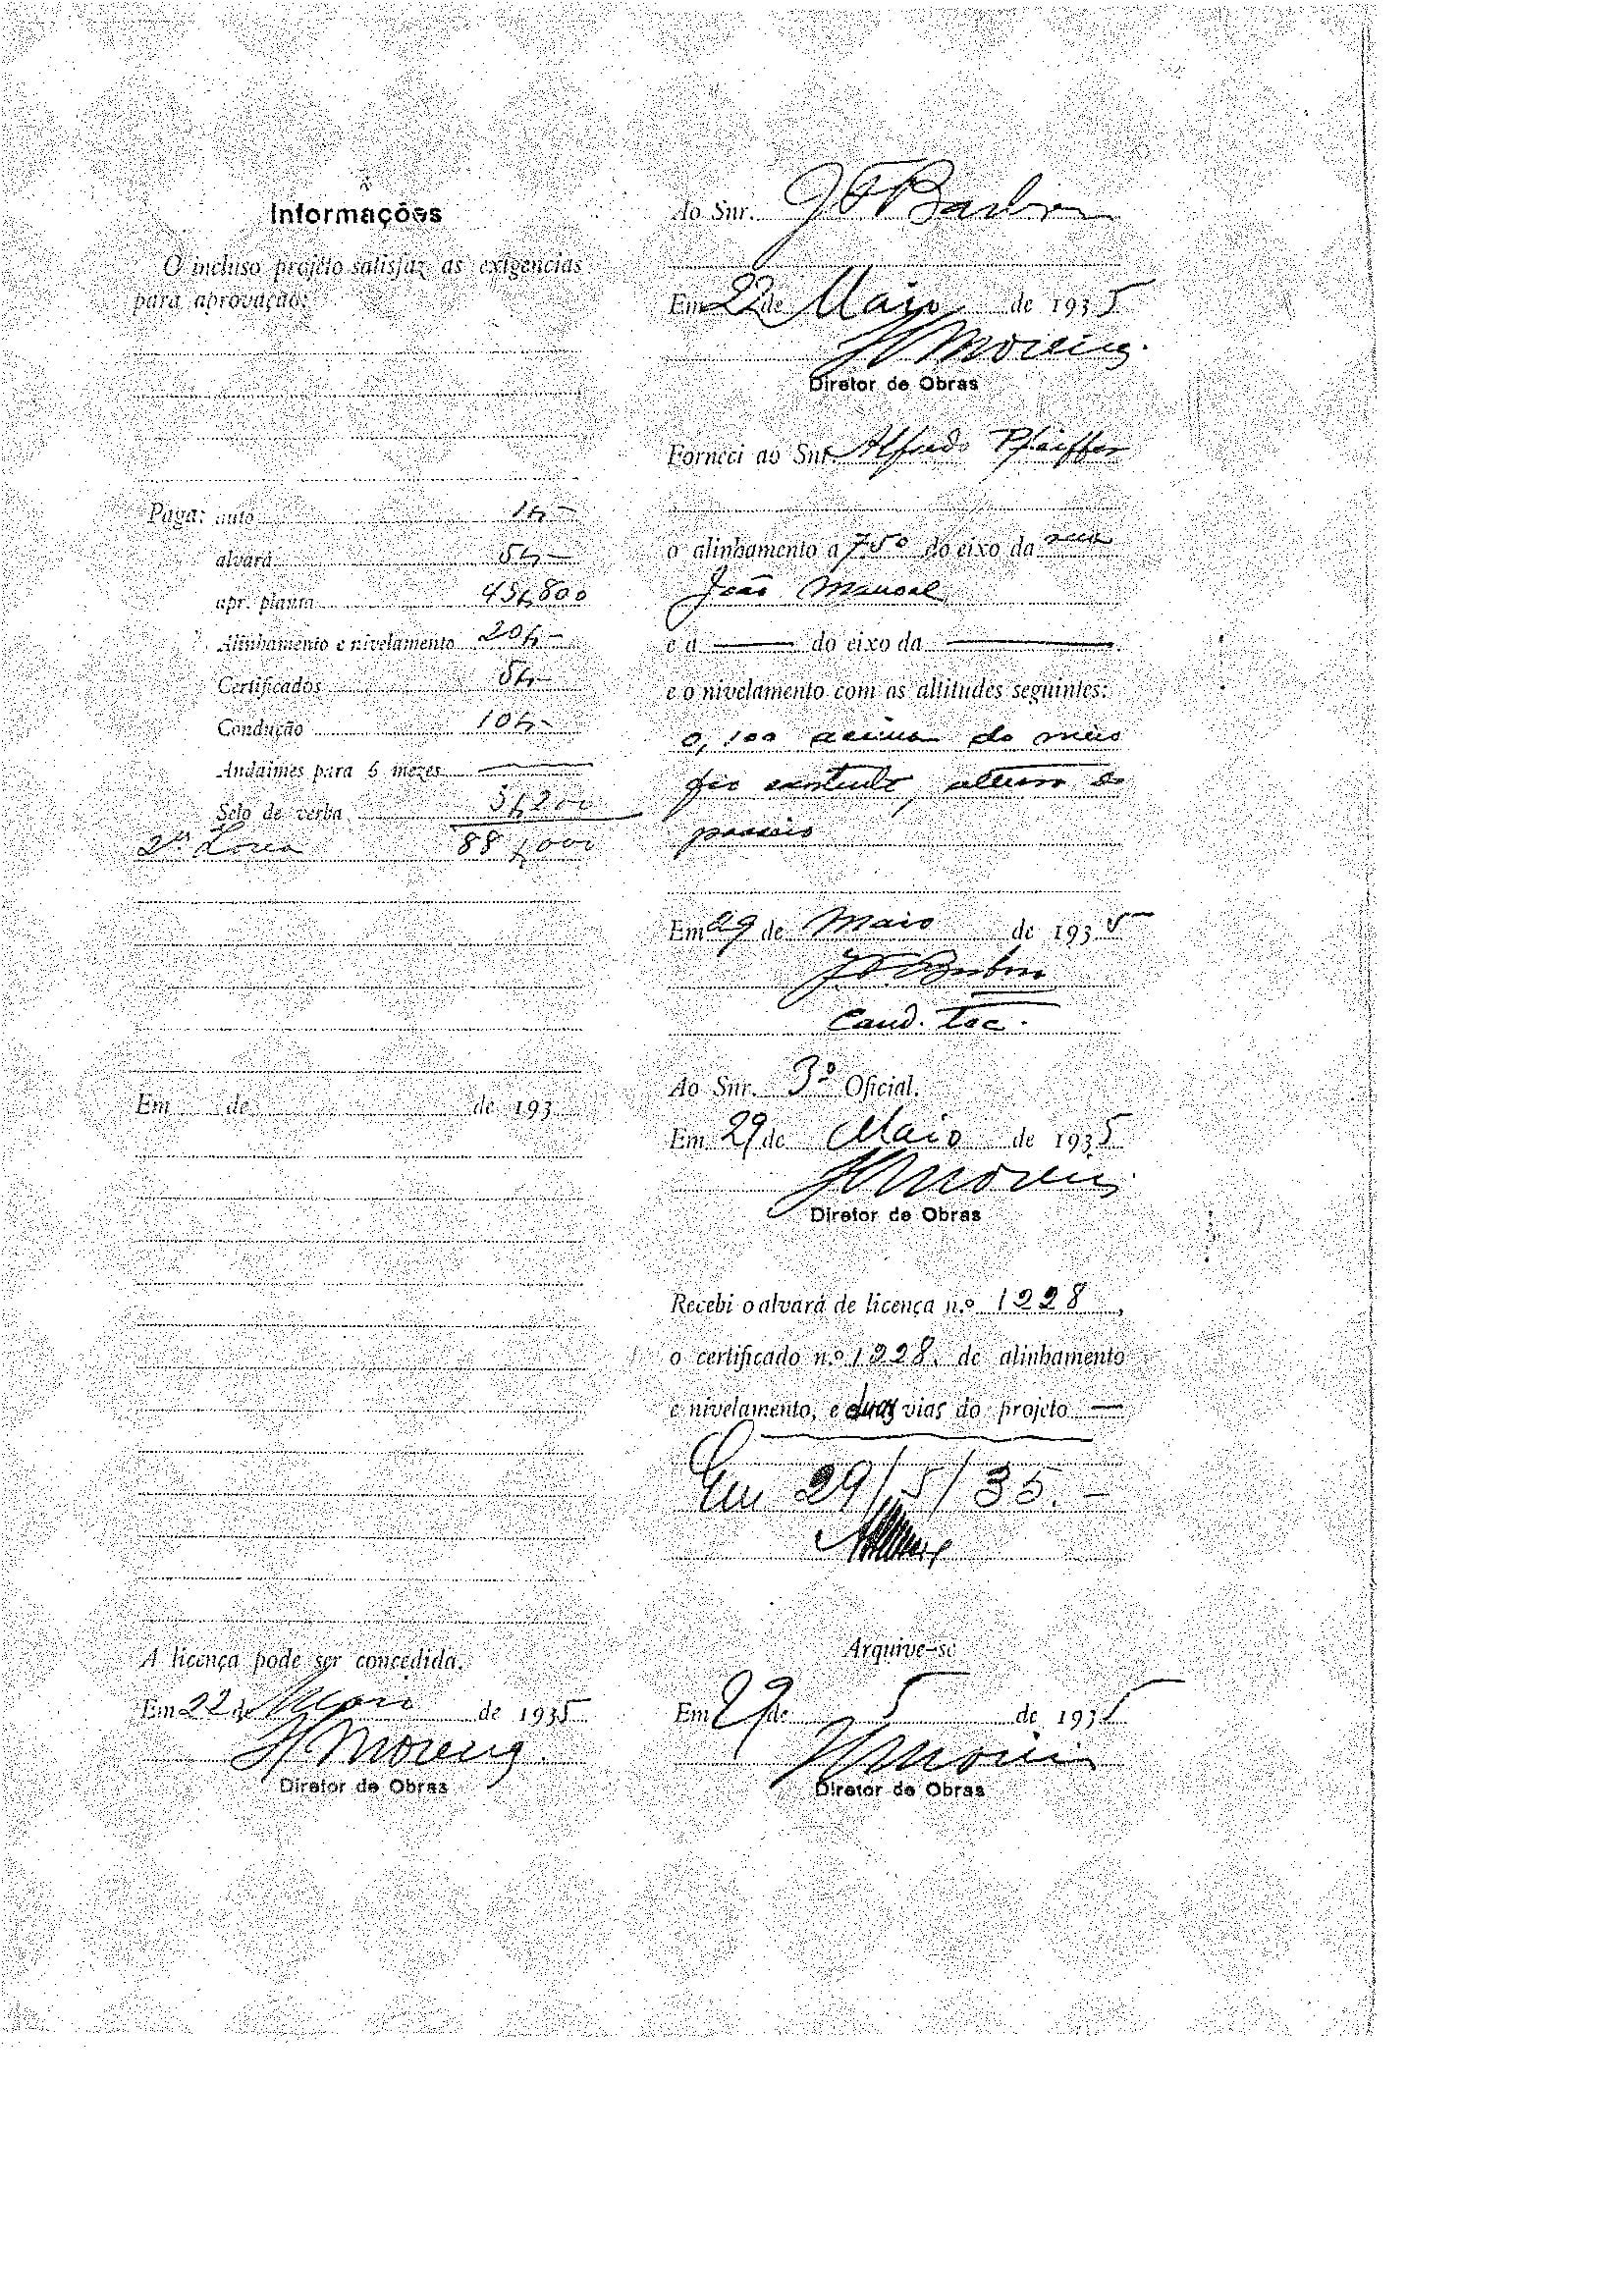 Informações
O incluso projéto satisfaz as exigencias
para aprovação:
Paga: auto 1$-
alvará 5$-
apr. planta 45$800
Alinhamento e nivelamento 20$-
Certificados 5$-
Condução 10$-
Andaimes para 6 mezes —
Selo de verba
2ª 88$000
Em de de 193
A licença pode ser concedida.
Em 22 de Maio de 1935
Moreira
Diretor de Obras
Ao Snr.
Em 22 de Maio de 1935
Moreira
Diretor de Obras
Forneci ao Snr. Alfredo Pfeiffer
o alinhamento a 7.50 do eixo da rua
João Manoel
e a — do eixo da —
e o nivelamento com as altitudes seguintes:
0,100 acima do meio
fio existente, o
passeio
Em 29 de Maio de 1935
Cond. Tec.
Ao Snr. 3º Oficial.
Em 29 de Maio de 1935
Moreira
Diretor de Obras
Recebi o alvará de licença n.º 1228,
o certificado n.º 1228. de alinhamento
e nivelamento, e duas vias do projeto —
Em 29/5/35.-
Arquive-se
Em 29 de 5 de 1935
Moreira
Diretor de Obras